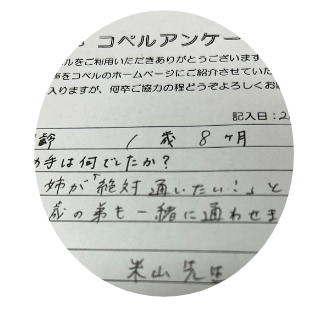 コペルアンケー
ルをご利用いただきありがとうございます
をコペルのホームページにご紹介させていた
入りますが、何卒ご協力の程どうぞよろしくお
記入日：2
齢 1 歳 8 ヶ月
手は何でしたか？
姉が「絶対通いたい！」と
歳の弟も一緒に通わせま
米山先生